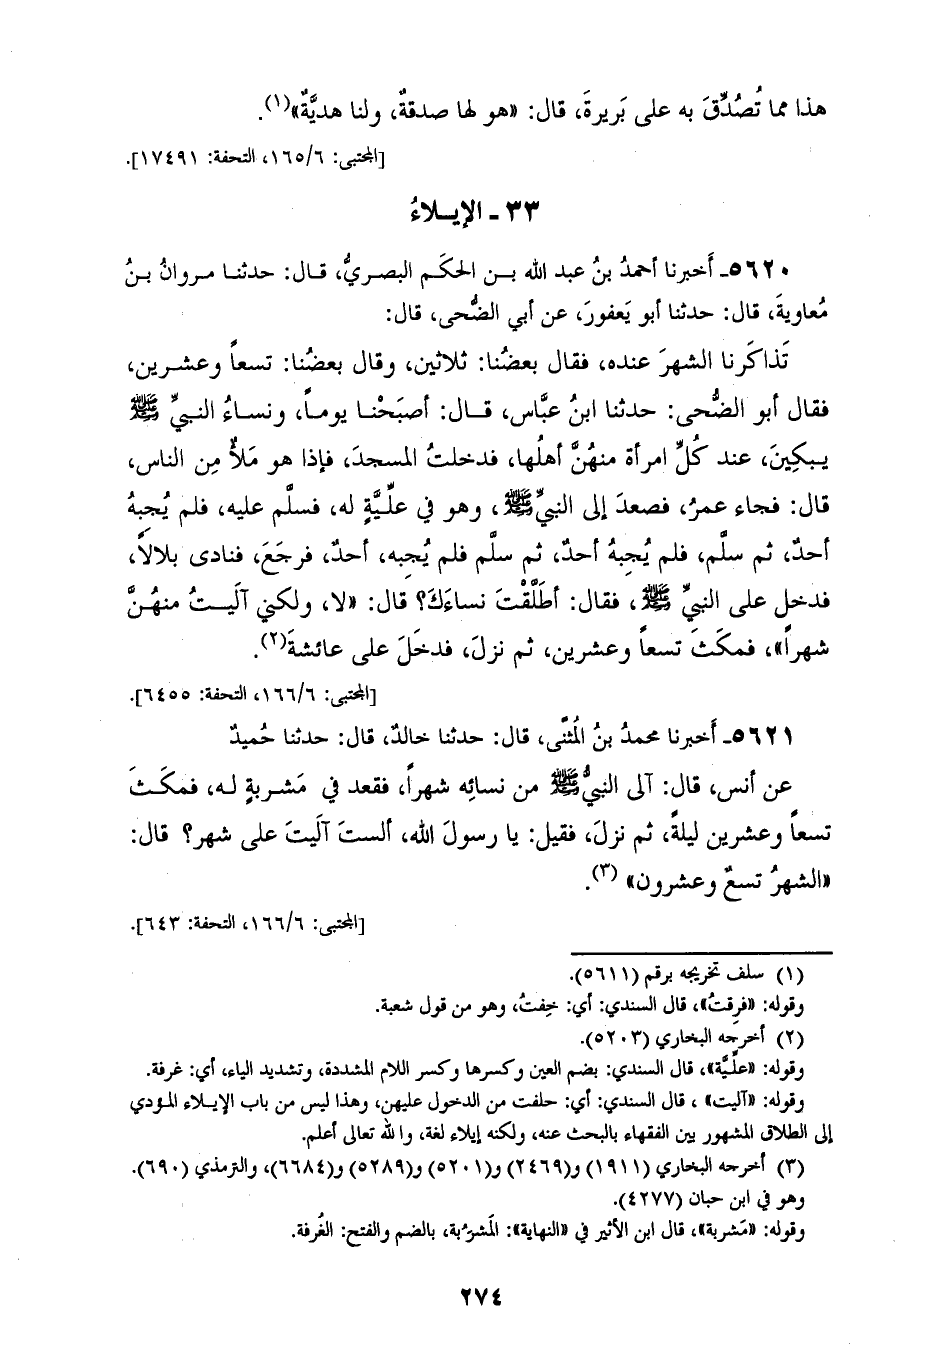 هذا مما تُصُدِّقَ به على بَريرةَ، قال: «هو لها صدقةٌ، ولنا هديَّةٌ»(١).
[المجتبى: ١٦٥/٦، التحفة: ١٧٤٩١].
٣٣ - الإيلاءُ
٥٦٢٠- أَخبرنا أحمدُ بنُ عبد الله بن الحكَم البصريُّ، قال: حدثنا مروانُ بنُ
مُعاويةَ، قال: حدثنا أبو يَعفورَ، عن أبي الضُّحى، قال:
تَذاكَرنا الشهرَ عنده، فقال بعضُنا: ثلاثين، وقال بعضُنا: تسعاً وعشرين،
فقال أبو الضُّحى: حدثنا ابنُ عبَّاس، قال: أصبَحْنا يوماً، ونساءُ النبيِّ ﷺ
يبكِينَ، عند كُلِّ امرأة منهُنَّ أهلُها، فدخلتُ المسجدَ، فإذا هو مَلأٌ مِن الناس،
قال: فجاء عمرُ، فصعدَ إلى النبيِّ ﷺ، وهو في عُلِّيَّةٍ له، فسلَّم عليه، فلم يُجِبهُ
أحدٌ، ثم سلَّم، فلم يُجِبهُ أحدٌ، ثم سلَّم فلم يُجِبه، أحدٌ، فرجَعَ، فنادى بلالاً،
فدخل على النبيِّ ﷺ، فقال: أطَلَّقْتَ نساءَكَ؟ قال: «لا، ولكني آلَيتُ منهُنَّ
شهراً»، فمكَثَ تسعاً وعشرين، ثم نزلَ، فدخَلَ على عائشةَ(٢).
[المجتبى: ١٦٦/٦، التحفة: ٦٤٥٥].
٥٦٢١- أَخبرنا محمدُ بنُ المُثنَّى، قال: حدثنا خالدٌ، قال: حدثنا حُميدٌ
عن أنس، قال: آلى النبيُّ ﷺ من نسائِه شهراً، فقعد في مَشربةٍ له، فمكَثَ
تسعاً وعشرين ليلةً، ثم نزلَ، فقيل: يا رسولَ الله، ألستَ آلَيتَ على شهر؟ قال:
«الشهرُ تسعٌ وعشرون» (٣).
[المجتبى: ١٦٦/٦، التحفة: ٦٤٣].
(١) سلف تخريجه برقم (٥٦١١).
وقوله: «فرِقتُ»، قال السندي: أي: خِفتُ، وهو من قول شعبة.
(٢) أخرجه البخاري (٥٢٠٣).
وقوله: «عُلِّيَّة»، قال السندي: بضم العين وكسرها وكسر اللام المشددة، وتشديد الياء، أي: غرفة.
وقوله: «آليت» ، قال السندي: أي: حلفت من الدخول عليهن، وهذا ليس من باب الإيلاء المؤدي
إلى الطلاق المشهور بين الفقهاء بالبحث عنه، ولكنه إيلاء لغة، والله تعالى أعلم.
(٣) أخرجه البخاري (١٩١١) و(٢٤٦٩) و(٥٢٠١) و(٥٢٨٩) و(٦٦٨٤)، والترمذي (٦٩٠).
وهو في ابن حبان (٤٢٧٧).
وقوله: «مَشربة»، قال ابن الأثير في «النهاية»: المَشرُبة، بالضم والفتح: الغُرفة.
٢٧٤